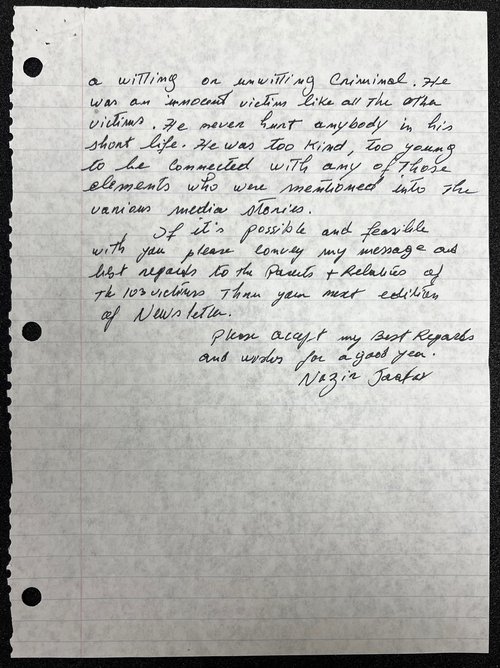 a willing or unwilling Criminal. He
was an innocent victim like all the other
victims. He never hurt anybody in his
short life. He was too kind, too young
to be connected with any of those
elements who were mentioned into the
various media stories.
If it's possible and feasible
with you please convey my message and
best regards to the Parents + Relatives of
the 103 victims thru your next edition
of Newsletter.
Please accept my Best Regards
and wishes for a good year.
Nazir Jaafar